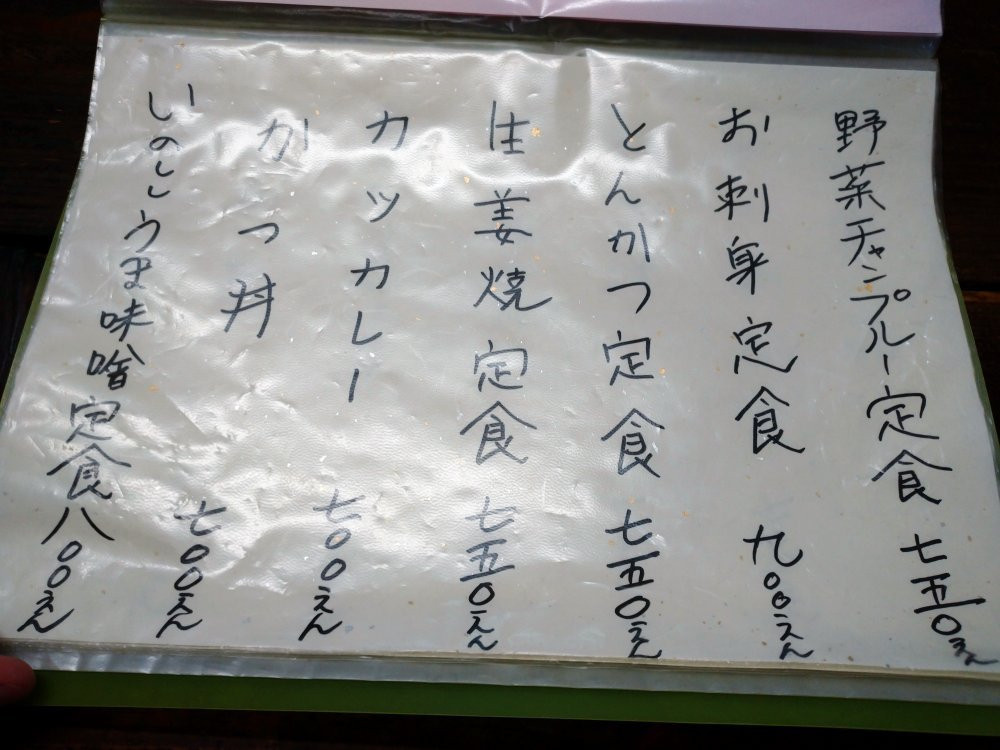 野菜チャンプルー定食 七五〇えん
お刺身定食 九〇〇えん
とんかつ定食 七五〇えん
生姜焼定食 七五〇えん
カツカレー 七〇〇えん
かつ丼 七〇〇えん
いのしうま味噌定食 八〇〇えん